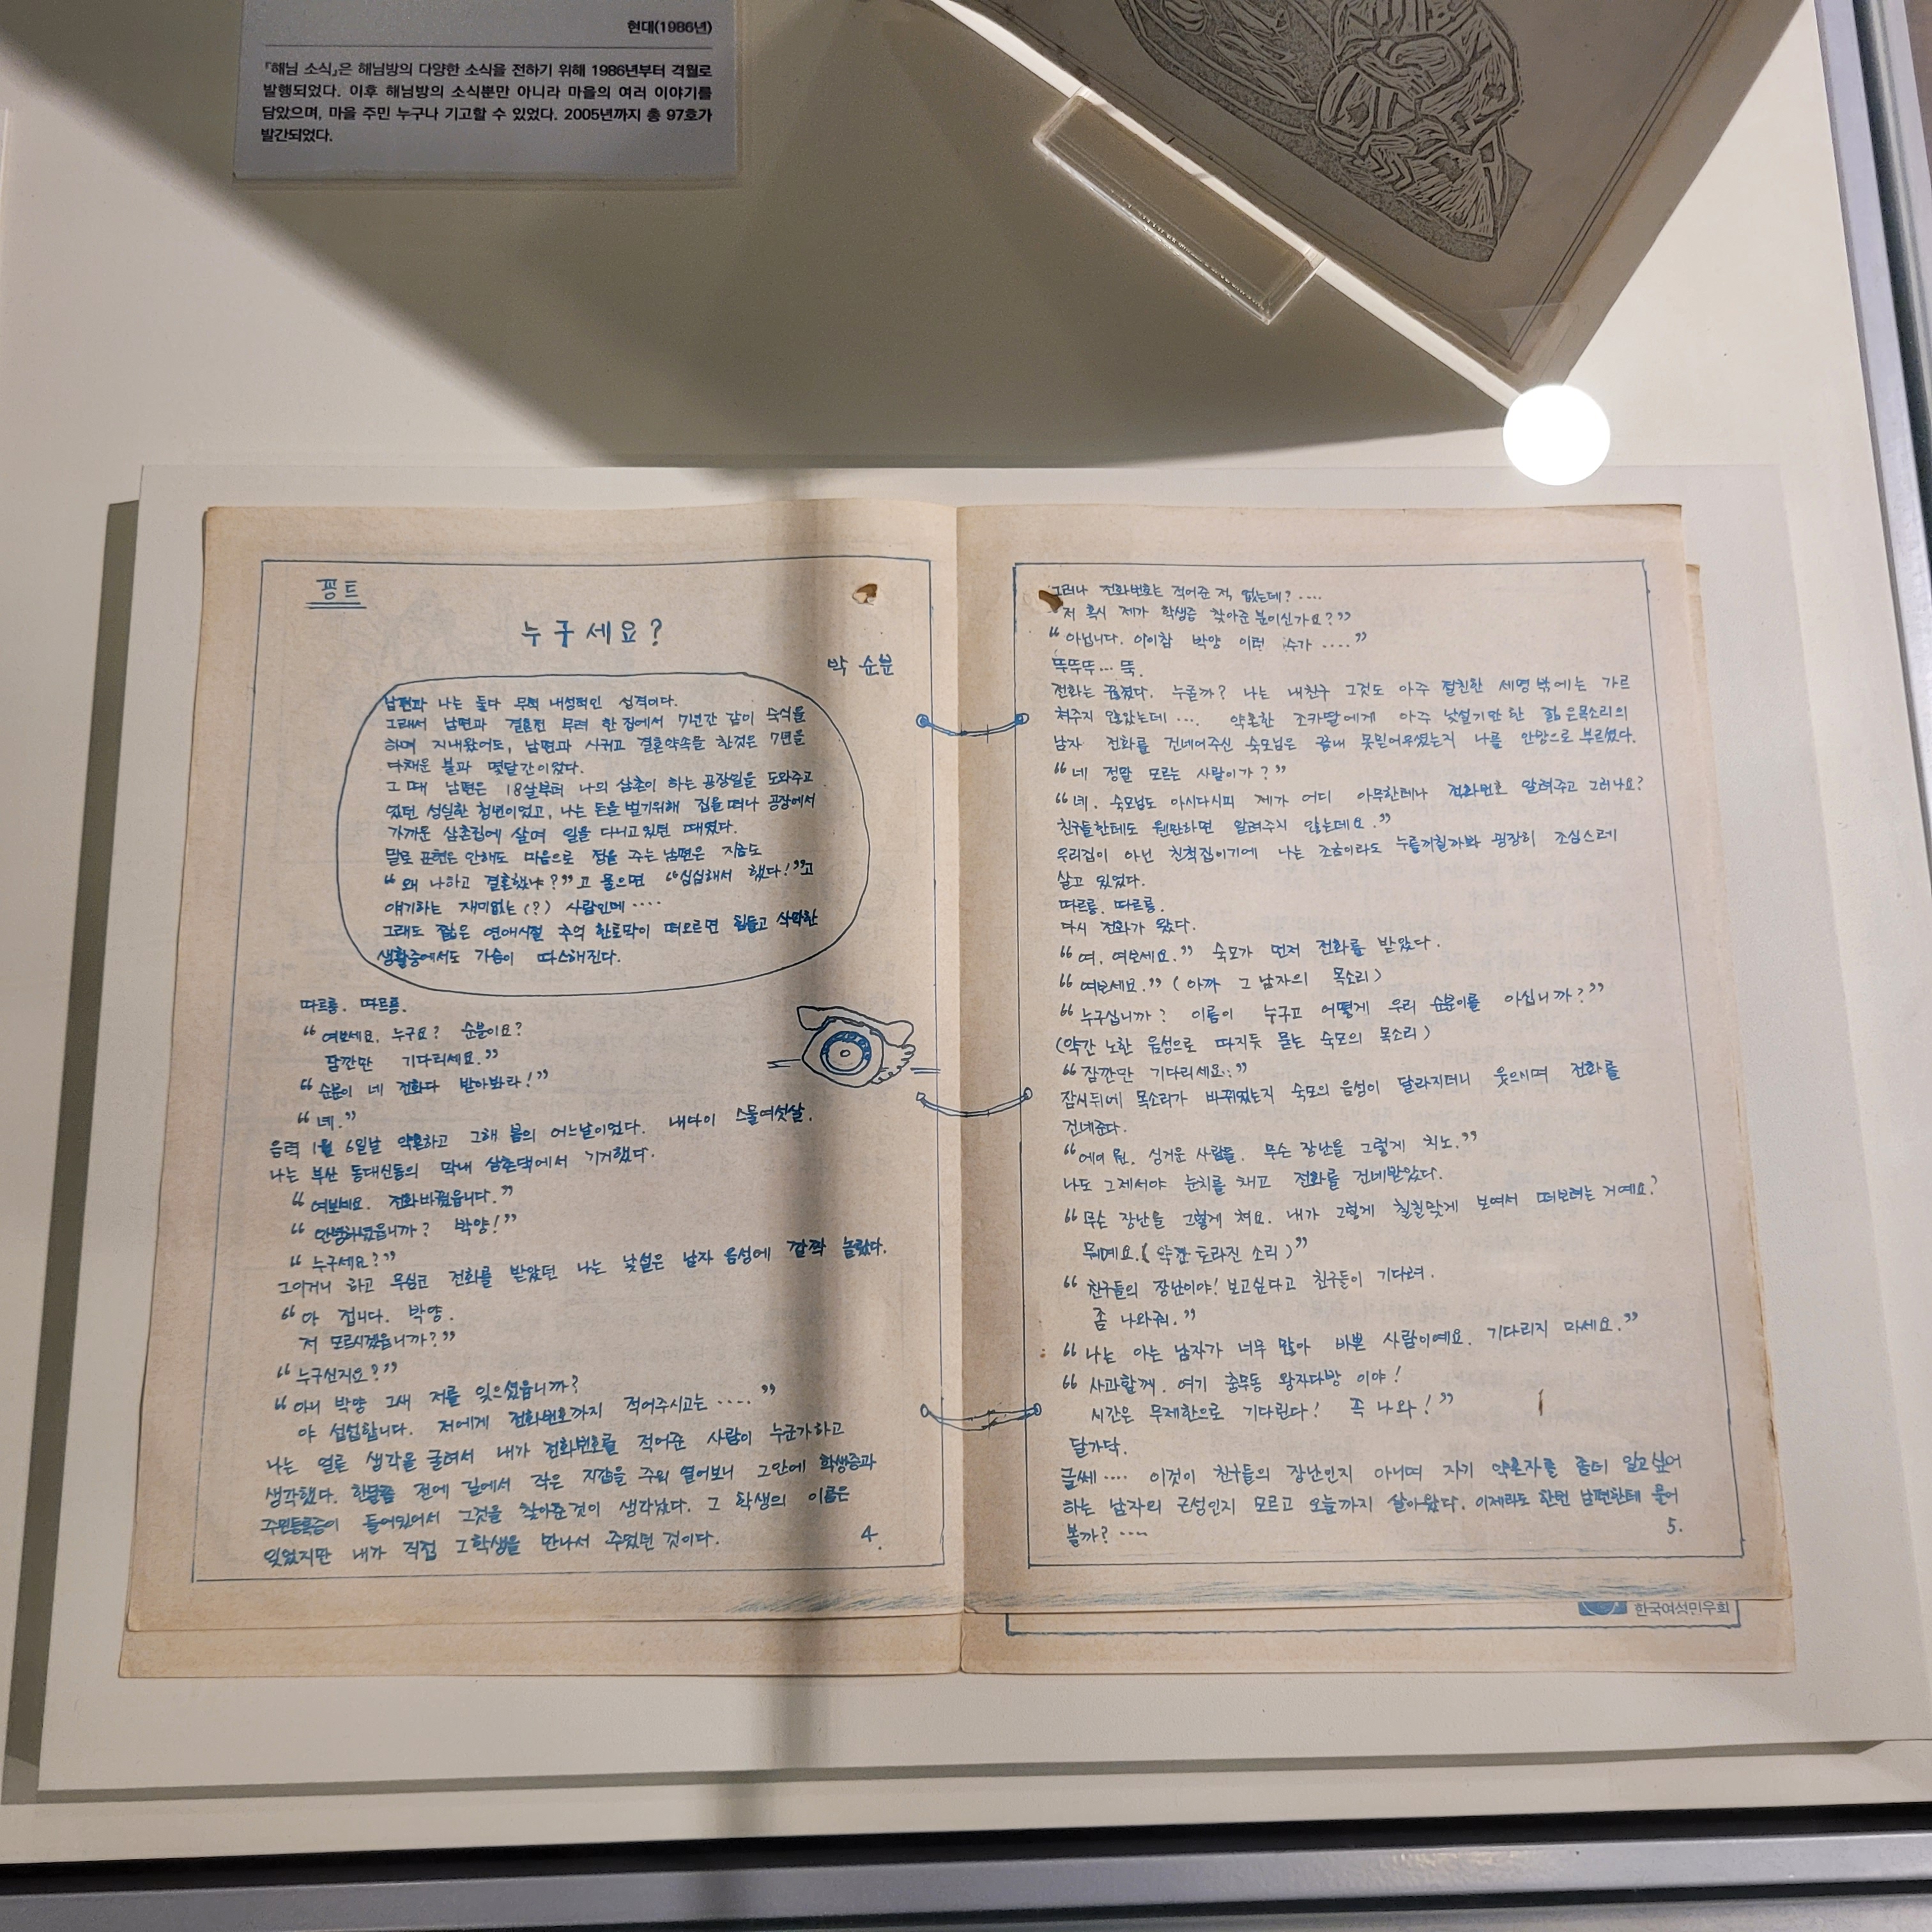 현대(1986년)
『해님 소식』은 해님방의 다양한 소식을 전하기 위해 1986년부터 격월로
발행되었다. 이후 해님방의 소식뿐만 아니라 마을의 여러 이야기를
담았으며, 마을 주민 누구나 기고할 수 있었다. 2005년까지 총 97호가
발간되었다.
꽁트
누구세요?
박 순분
남편과 나는 둘다 무척 내성적인 성격이다.
그래서 남편과 결혼전 무려 한집에서 7년간 같이 숙식을
하며 지내왔어도, 남편과 사귀고 결혼약속을 한것은 7년을
다채운 불과 몇달간이었다.
그때 남편은 18살부터 나의 삼촌이 하는 공장일을 도와주고
있던 성실한 청년이었고, 나는 돈을 벌기위해 집을떠나 공장에서
가까운 삼촌집에 살며 일을 다니고 있던 때였다.
말로 표현은 안해도 마음으로 정을 주는 남편은 지금도
“왜 나하고 결혼했냐?”고 물으면 “심심해서 했다!”고
얘기하는 재미없는(?) 사람인데····
그래도 짧은 연애시절 추억 한토막이 떠오르면 힘들고 삭막한
생활중에서도 가슴이 따스해진다.
따르릉. 따르릉.
“여보세요. 누구요? 순분이요?
잠깐만 기다리세요.”
“순분이 네 전화다 받아봐라!”
“네.”
음력 1월 6일날 약혼하고 그해 봄의 어느날이었다. 내나이 스물여섯살.
나는 부산 동대신동의 막내 삼촌댁에서 기거했다.
“여보세요. 전화바꿨읍니다.”
“안녕하셨읍니까? 박양!”
“누구세요?”
그이거니 하고 무심코 전화를 받았던 나는 낯설은 남자 음성에 깜짝 놀랐다.
“아 접니다. 박양.
저 모르시겠읍니까?”
“누구신지요?”
“아니 박양 그새 저를 잊으셨읍니까?
야 섭섭합니다. 저에게 전화번호까지 적어주시고는·····”
나는 얼른 생각을 굴려서 내가 전화번호를 적어준 사람이 누군가하고
생각했다. 한달쯤 전에 길에서 작은 지갑을 주워 열어보니 그안에 학생증과
주민등록증이 들어있어서 그것을 찾아준것이 생각났다. 그 학생의 이름은
잊었지만 내가 직접 그학생을 만나서 주었던 것이다.
4.
그러나 전화번호는 적어준 적 없는데?····
“저 혹시 제가 학생증 찾아준 분이신가요?”
“아닙니다. 아이참 박양 이런 수가····”
뚜뚜뚜… 뚝.
전화는 끊겼다. 누굴까? 나는 내친구 그것도 아주 절친한 세명밖에는 가르
쳐주지 않았는데···· 약혼한 조카딸에게 아주 낯설기만한 젊은목소리의
남자 전화를 건네어주신 숙모님은 끝내 못믿어우셨는지 나를 안방으로 부르셨다.
“네 정말 모르는 사람이가?”
“네. 숙모님도 아시다시피 제가 어디 아무한테나 전화번호 알려주고 그러나요?
친구들한테도 웬만하면 알려주지 않는데요.”
우리집이 아닌 친척집이기에 나는 조금이라도 누를끼칠까봐 굉장히 조심스레
살고 있었다.
따르릉. 따르릉.
다시 전화가 왔다.
“여. 여보세요.” 숙모가 먼저 전화를 받았다.
“여보세요.” (아까 그 남자의 목소리)
“누구십니까? 이름이 누구고 어떻게 우리 순분이를 아십니까?”
(약간 노한 음성으로 따지듯 묻는 숙모의 목소리)
“잠깐만 기다리세요.”
잠시뒤에 목소리가 바뀌었는지 숙모의 음성이 달라지더니 웃으시며 전화를
건네준다.
“에이 뭔. 싱거운 사람들. 무슨 장난을 그렇게 치노.”
나도 그제서야 눈치를 채고 전화를 건네받았다.
“무슨 장난을 그렇게 쳐요. 내가 그렇게 칠칠맞게 보여서 떠보려는거예요?
뭐예요. (약간 토라진 소리)”
“친구들의 장난이야! 보고싶다고 친구들이 기다려.
좀 나와줘.”
“나는 아는 남자가 너무 많아 바쁜 사람이예요. 기다리지 마세요.”
“사과할께. 여기 충무동 왕자다방 이야!
시간은 무제한으로 기다린다! 꼭 나와!”
달가닥.
글쎄···· 이것이 친구들의 장난인지 아니면 자기 약혼자를 좀더 알고싶어
하는 남자의 근성인지 모르고 오늘까지 살아왔다. 이제라도 한번 남편한테 물어
볼까?····
5.
한국여성민우회